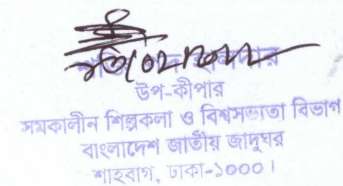 উপ-কীপার
সমকালীন শিল্পকলা ও বিশ্বসভ্যতা বিভাগ
বাংলাদেশ জাতীয় জাদুঘর
শাহবাগ, ঢাকা-১০০০।